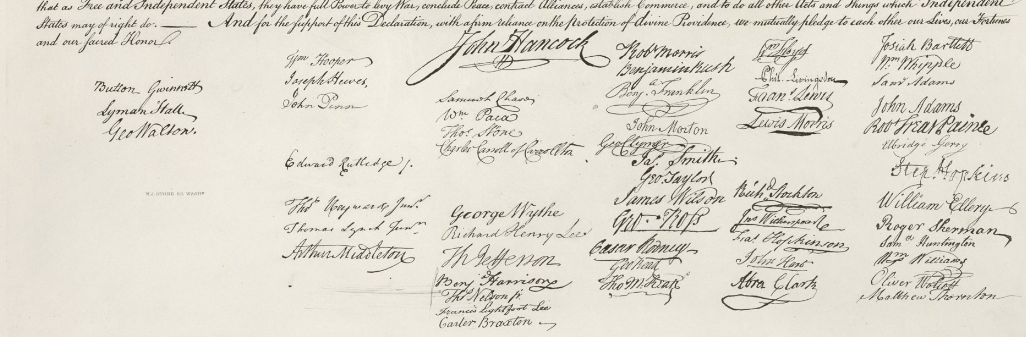 that as Free and Independent States, they have full Power to levy War, conclude Peace, contract Alliances, establish Commerce, and to do all other Acts and Things which Independent
States may of right do. — And for the support of this Declaration, with a firm reliance on the protection of divine Providence, we mutually pledge to each other our Lives, our Fortunes
and our sacred Honor
Button Gwinnett
Lyman Hall
Geo Walton.
W.J. STONE SC WASHN
Wm Hooper
Joseph Hewes,
John Penn
Edward Rutledge /.
Thos Heyward Junr.
Thomas Lynch Junr.
Arthur Middleton
John Hancock
Samuel Chase
Wm Paca
Thos Stone
Charles Carroll of Carrollton
George Wythe
Richard Henry Lee
Th Jefferson
Benj Harrison
Thos Nelson jr.
Francis Lightfoot Lee
Carter Braxton
Robt Morris
Benjamin Rush
Benj. Franklin
John Morton
Geo Clymer
Jas. Smith
Geo. Taylor
James Wilson
Geo. Ross
Caesar Rodney
Geo Read
Tho M:Kean
Wm Floyd
Phil. Livingston
Frans. Lewis
Lewis Morris
Richd Stockton
Jno Witherspoon
Fras Hopkinson
John Hart
Abra Clark
Josiah Bartlett
Wm Whipple
Saml Adams
John Adams
Robt Treat Paine
Elbridge Gerry
Step. Hopkins
William Ellery
Roger Sherman
Saml Huntington
Wm Williams
Oliver Wolcott
Matthew Thornton